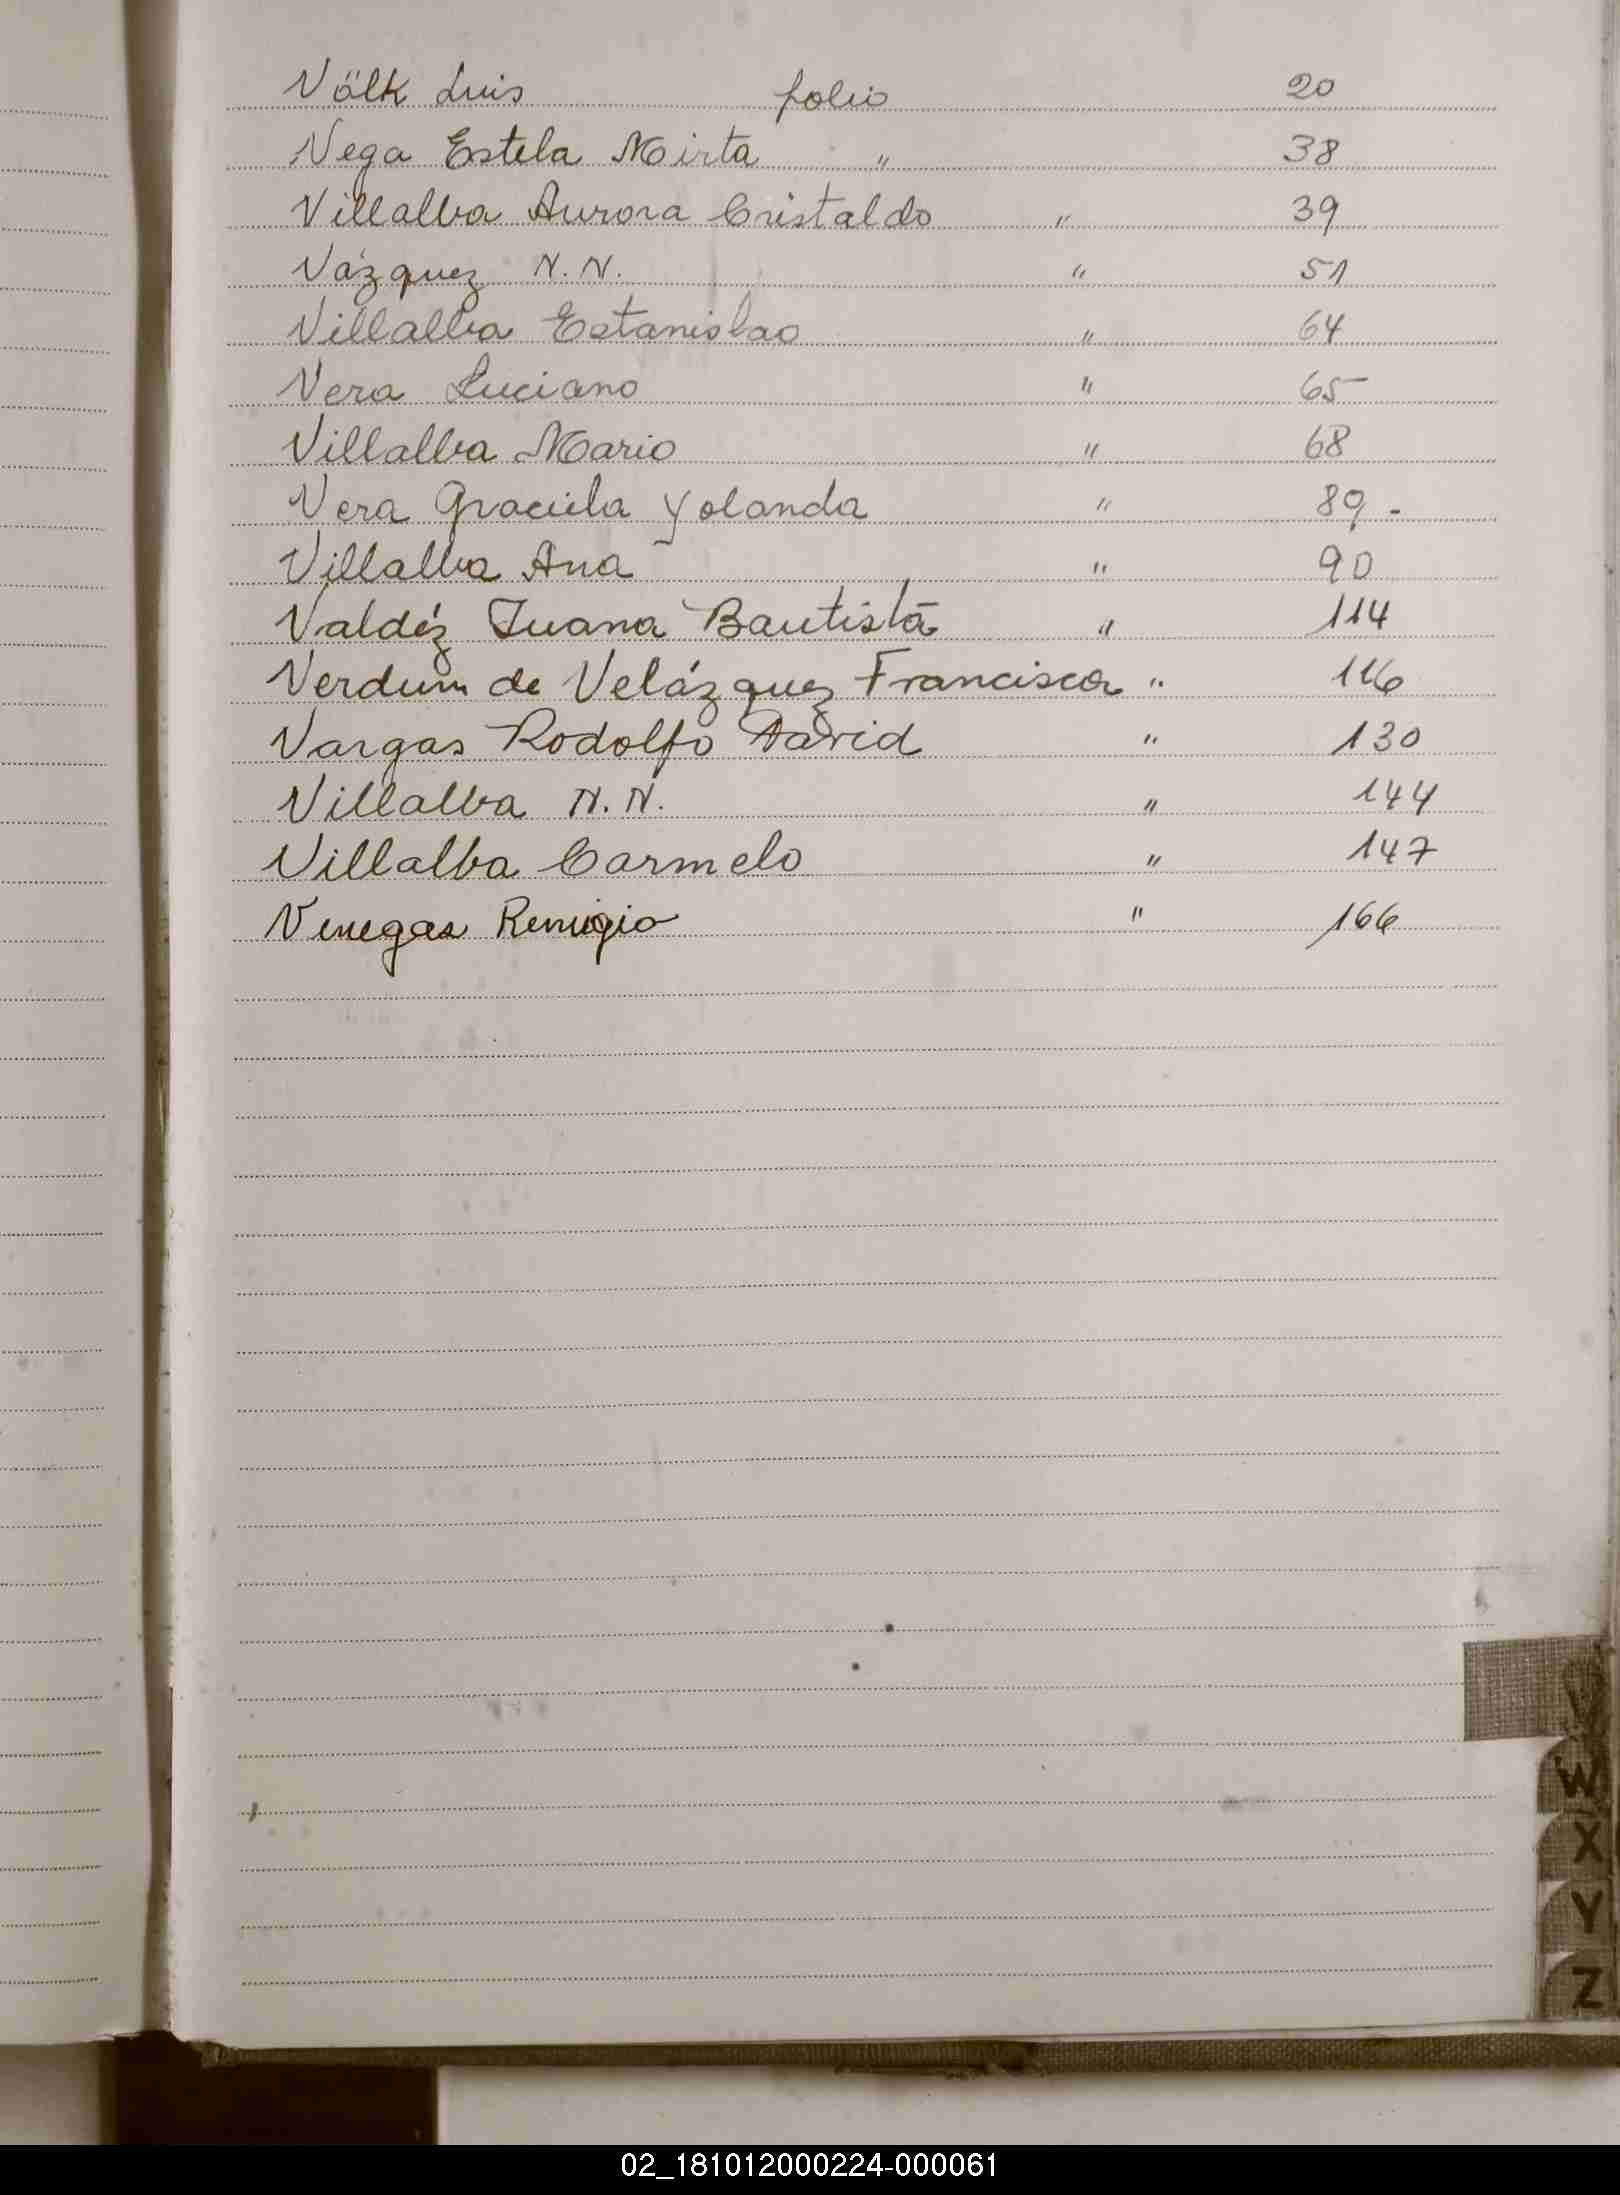 Völk Luis folio 20
Vega Estela Mirta " 38
Villalba Aurora Cristaldo " 39
Vázquez N.N. " 51
Villalba Estanislao " 64
Vera Luciano " 65
Villalba Mario " 68
Vera Graciela Yolanda " 89-
Villalba Ana " 90
Valdéz Juana Bautista " 114
Verdum de Velázquez Francisca " 116
Vargas Rodolfo David " 130
Villalba N.N. " 144
Villalba Carmelo " 147
Venegas Remigio " 166
V
W
X
Y
Z
02_181012000224-000061